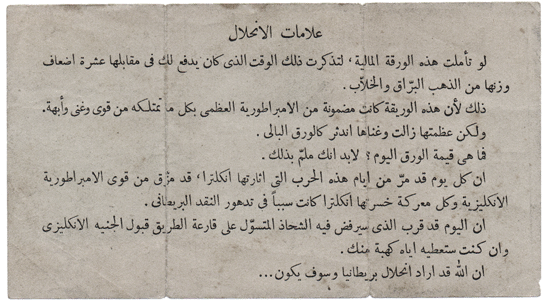 علامات الانحلال
لو تأملت هذه الورقة المالية ، لتذكرت ذلك الوقت الذى كان يدفع لك فى مقابلها عشرة اضعاف
وزنها من الذهب البرّاق والخلاّب .
ذلك لأن هذه الوريقة كانت مضمونة من الامبراطورية العظمى بكل ما تمتلكه من قوى وغنى وأبهة .
ولكن عظمتها زالت وغناها اندثر كالورق البالى .
فما هى قيمة الورق اليوم ؟ لابد انك ملمّ بذلك .
ان كل يوم قد مرّ من ايام هذه الحرب التى اثارتها انكلترا ، قد مزّق من قوى الامبراطورية
الانكليزية وكل معركة خسرتها انكلترا كانت سبباً فى تدهور النقد البريطانى .
ان اليوم قد قرب الذى سيرفض فيه الشحاذ المتسوّل على قارعة الطريق قبول الجنيه الانكليزى
وان كنت ستعطيه اياه كهبة منك .
ان الله قد اراد انحلال بريطانيا وسوف يكون ...